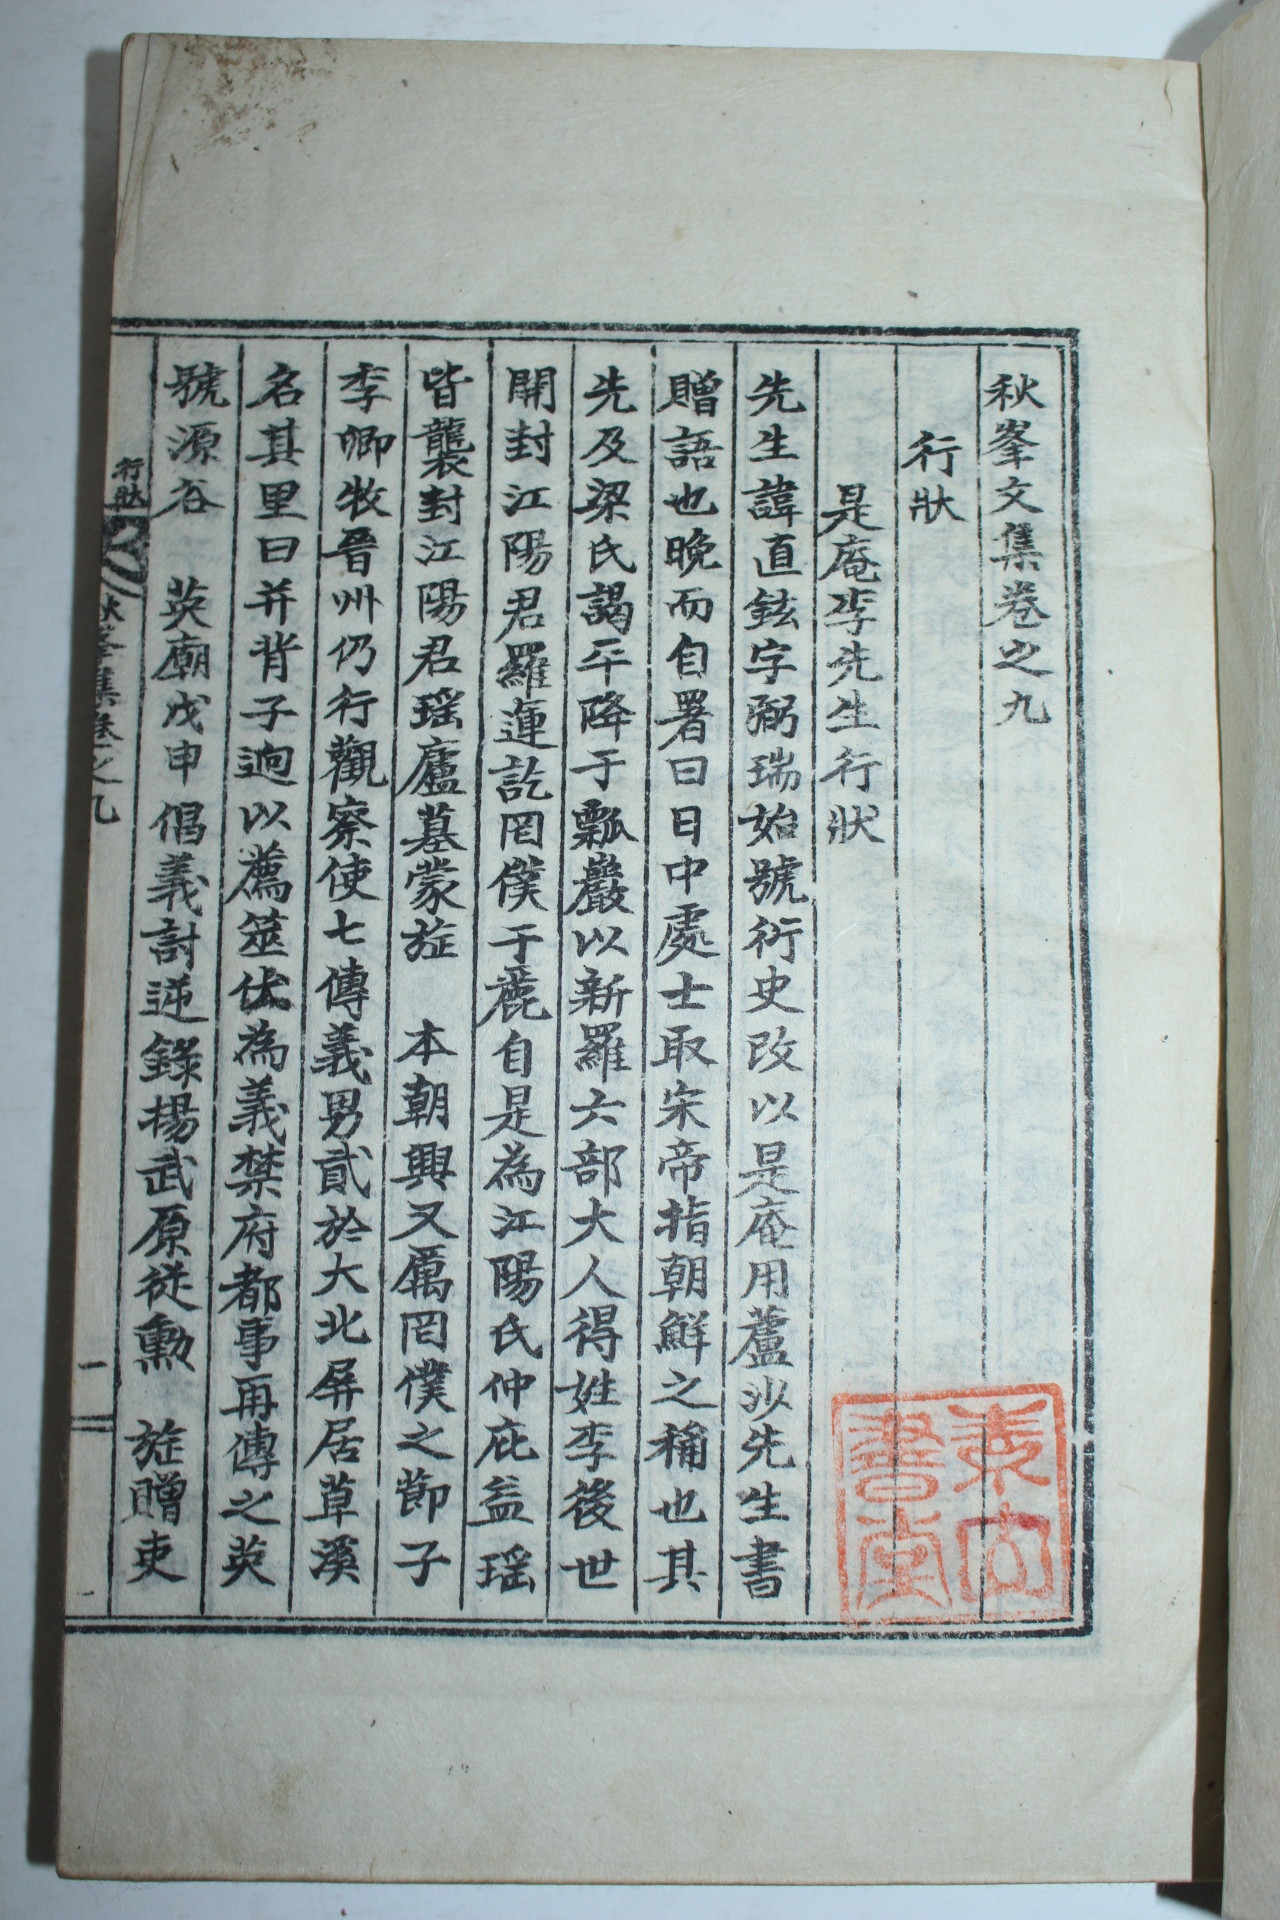 秋峯文集卷之九
行狀
是庵李先生行狀
先生諱直鉉字弼瑞始號衍史改以是庵用蘆沙先生書
贈語也晚而自署曰日中處士取宋帝指朝鮮之稱也其
先及梁氏謁平降于瓢巖以新羅六部大人得姓李後世
開封江陽君羅運訖罔僕于麗自是為江陽氏仲庇益瑶
皆襲封江陽君瑶廬墓蒙旌 本朝興又厲罔僕之節子
李卿牧晉州仍行觀察使七傳義男貳於大北屏居草溪
名其里曰幷背子逈以薦筮仕為義禁府都事再傳之英
號源谷 英廟戊申倡義討逆錄揚武原從勳 旌贈吏
行狀
秋峯集卷之九
一